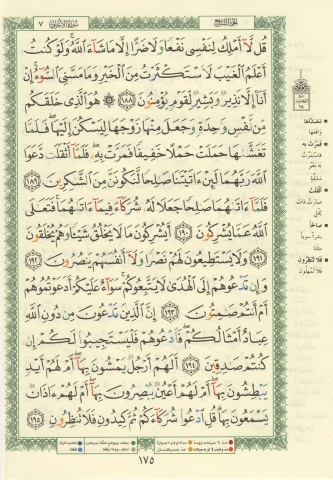 ٧ سورة الأعراف الجزء التاسع ٧
قُل لَّآ أَمْلِكُ لِنَفْسِى نَفْعًا وَلَا ضَرًّا إِلَّا مَا شَآءَ ٱللَّهُ وَلَوْ كُنتُ
أَعْلَمُ ٱلْغَيْبَ لَٱسْتَكْثَرْتُ مِنَ ٱلْخَيْرِ وَمَا مَسَّنِىَ ٱلسُّوٓءُ إِنْ
أَنَا۠ إِلَّا نَذِيرٌ وَبَشِيرٌ لِّقَوْمٍ يُؤْمِنُونَ ١٨٨ هُوَ ٱلَّذِى خَلَقَكُم
مِّن نَّفْسٍ وَٰحِدَةٍ وَجَعَلَ مِنْهَا زَوْجَهَا لِيَسْكُنَ إِلَيْهَا فَلَمَّا
تَغَشَّىٰهَا حَمَلَتْ حَمْلًا خَفِيفًا فَمَرَّتْ بِهِۦ فَلَمَّآ أَثْقَلَت دَّعَوَا
ٱللَّهَ رَبَّهُمَا لَئِنْ ءَاتَيْتَنَا صَٰلِحًا لَّنَكُونَنَّ مِنَ ٱلشَّٰكِرِينَ ١٨٩
فَلَمَّآ ءَاتَىٰهُمَا صَٰلِحًا جَعَلَا لَهُۥ شُرَكَآءَ فِيمَآ ءَاتَىٰهُمَا فَتَعَٰلَى
ٱللَّهُ عَمَّا يُشْرِكُونَ ١٩٠ أَيُشْرِكُونَ مَا لَا يَخْلُقُ شَيْـًٔا وَهُمْ يُخْلَقُونَ
١٩١ وَلَا يَسْتَطِيعُونَ لَهُمْ نَصْرًا وَلَآ أَنفُسَهُمْ يَنصُرُونَ ١٩٢
وَإِن تَدْعُوهُمْ إِلَى ٱلْهُدَىٰ لَا يَتَّبِعُوكُمْ سَوَآءٌ عَلَيْكُمْ أَدَعَوْتُمُوهُمْ
أَمْ أَنتُمْ صَٰمِتُونَ ١٩٣ إِنَّ ٱلَّذِينَ تَدْعُونَ مِن دُونِ ٱللَّهِ
عِبَادٌ أَمْثَالُكُمْ فَٱدْعُوهُمْ فَلْيَسْتَجِيبُوا۟ لَكُمْ إِن
كُنتُمْ صَٰدِقِينَ ١٩٤ أَلَهُمْ أَرْجُلٌ يَمْشُونَ بِهَآ أَمْ لَهُمْ أَيْدٍ
يَبْطِشُونَ بِهَآ أَمْ لَهُمْ أَعْيُنٌ يُبْصِرُونَ بِهَآ أَمْ لَهُمْ ءَاذَانٌ
يَسْمَعُونَ بِهَا قُلِ ٱدْعُوا۟ شُرَكَآءَكُمْ ثُمَّ كِيدُونِ فَلَا تُنظِرُونِ ١٩٥
تغشاها
واقعها
فمرت به
فاستمرت
به بغير
مشقة
أثقلت
صارت ذات
ثقل
صالحا
بشرا سويا
فلا تنظرون
فلا تمهلون
١٧٥